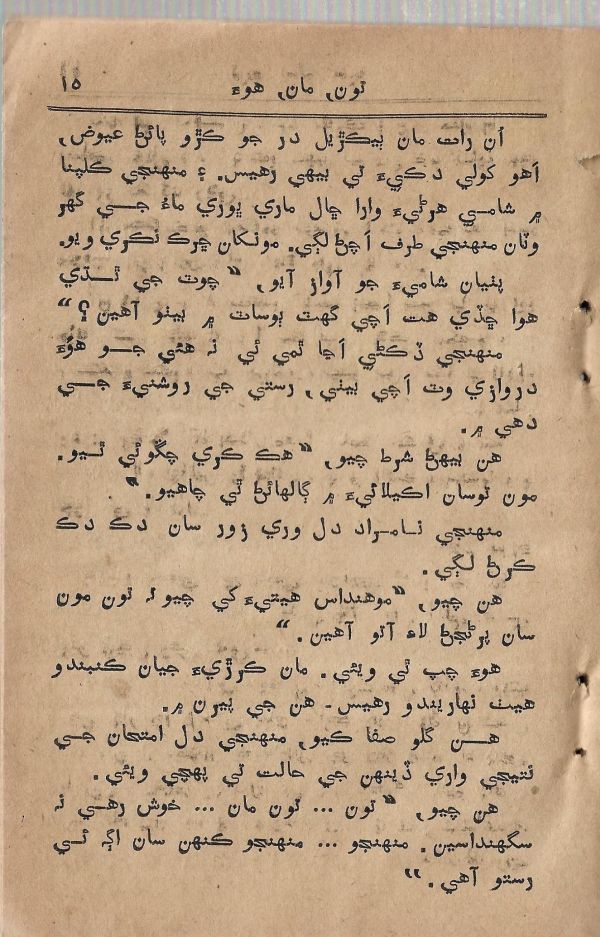 تون، مان، هوءَ ١٥
اُن رات مان بيڪڙيل در جو ڪڙو پائڻ عيوض،
اَهو کولي دڪيءَ تي بيهي رهيس. ۽ منهنجي ڪلپنا
۾ شامي هرڻيءَ وارا ڇال ماري پوڙي ماءُ جي گهر
وٽان منهنجي طرف اَچڻ لڳي. مونکان ڇرڪ نڪري ويو.
پٺيان شاميءَ جو آواز آيو، “چوٽ جي ٿڌي
هوا ڇڏي هت اَچي گهٽ ٻوساٽ ۾ بيٺو آهين؟“
منهنجي ڏڪڻي اَڃا ٿمي ئي نہ هئي جو هوُءَ
دروازي وٽ اَچي بيٺي، رستي جي روشنيءَ جي
دهي ۾.
هن بيهڻ شرط چيو، “هڪ ڪري چڱوئي ٿيو.
مون توسان اڪيلائيءَ ۾ ڳالهائڻ ٿي چاهيو.“
منهنجي نامراد دل وري زور سان دڪ دڪ
ڪرڻ لڳي.
هن چيو، “موهنداس هيٺيءَ کي چيو تہ تون مون
سان پرڻجڻ لاءِ آتو آهين.“
هوءَ چپ ٿي ويئي. مان ڪرڙيءَ جيان ڪنبندو
هيٺ نهاريندو رهيس۔ هن جي پيرن ۾.
هن گلو صفا ڪيو، منهنجي دل امتحان جي
نتيجي واري ڏينهن جي حالت تي پهچي ويئي.
هن چيو، “تون ... تون مان ... خوش رهي نہ
سگهنداسين. منهنجو ... منهنجو ڪنهن سان اڳہ ئي
رستو آهي.“